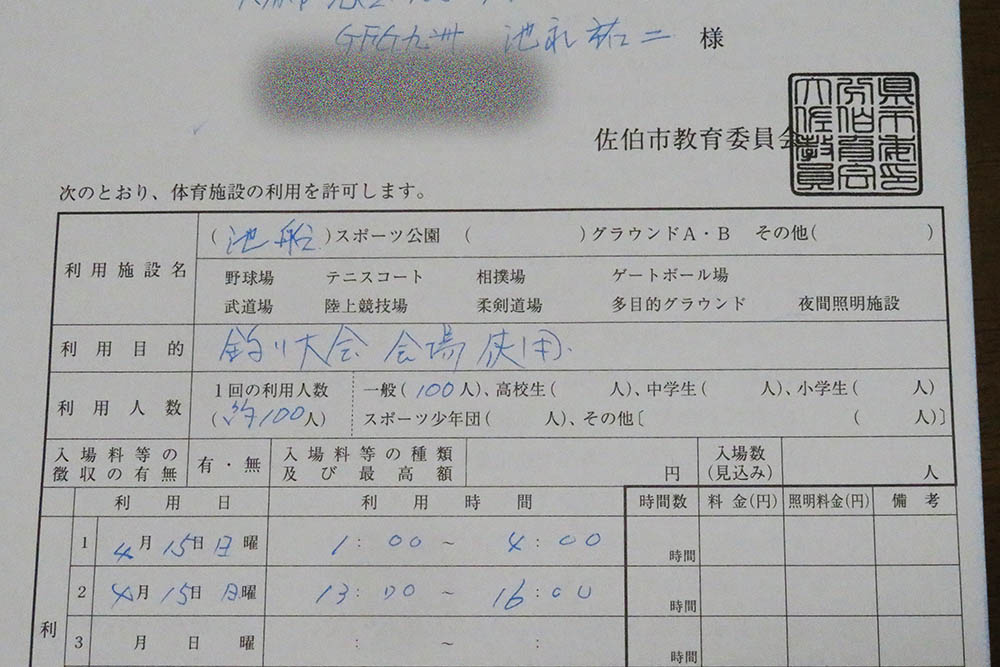 GFG九州 池永祐二 様
佐伯市教育委員会
次のとおり、体育施設の利用を許可します。
利用施設名 (池船)スポーツ公園 ( )グラウンドA・B その他( )
野球場 テニスコート 相撲場 ゲートボール場
武道場 陸上競技場 柔剣道場 多目的グラウンド 夜間照明施設
利用目的 釣り大会 会場使用.
利用人数 1回の利用人数 (約100人) 一般(100人)、高校生( 人)、中学生( 人)、小学生( 人)
スポーツ少年団( 人)、その他〔 ( 人)〕
入場料等の徴収の有無 有・無 入場料等の種類及び最高額 円 入場数(見込み) 人
利用日 利用時間 時間数 料金(円) 照明料金(円) 備考
1 4月15日日曜 1:00~4:00 時間
2 4月15日日曜 13:00~16:00 時間
利 3 月 日 曜 : ~ : 時間